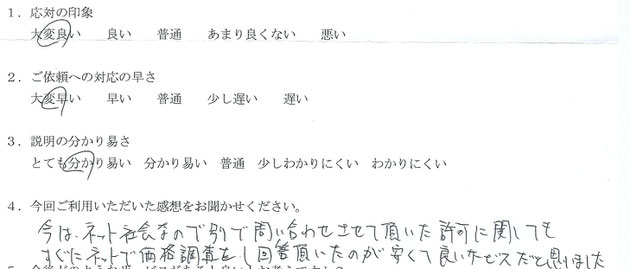 1．応対の印象
大変良い　良い　普通　あまり良くない　悪い
2．ご依頼への対応の早さ
大変早い　早い　普通　少し遅い　遅い
3．説明の分かり易さ
とても分かり易い　分かり易い　普通　少しわかりにくい　わかりにくい
4．今回ご利用いただいた感想をお聞かせください。
今は、ネット社会なので別で問い合わせさせて頂いた許可に関しても
すぐにネットで価格調査をし回答頂いたのが安くて良いたビスだと思いました